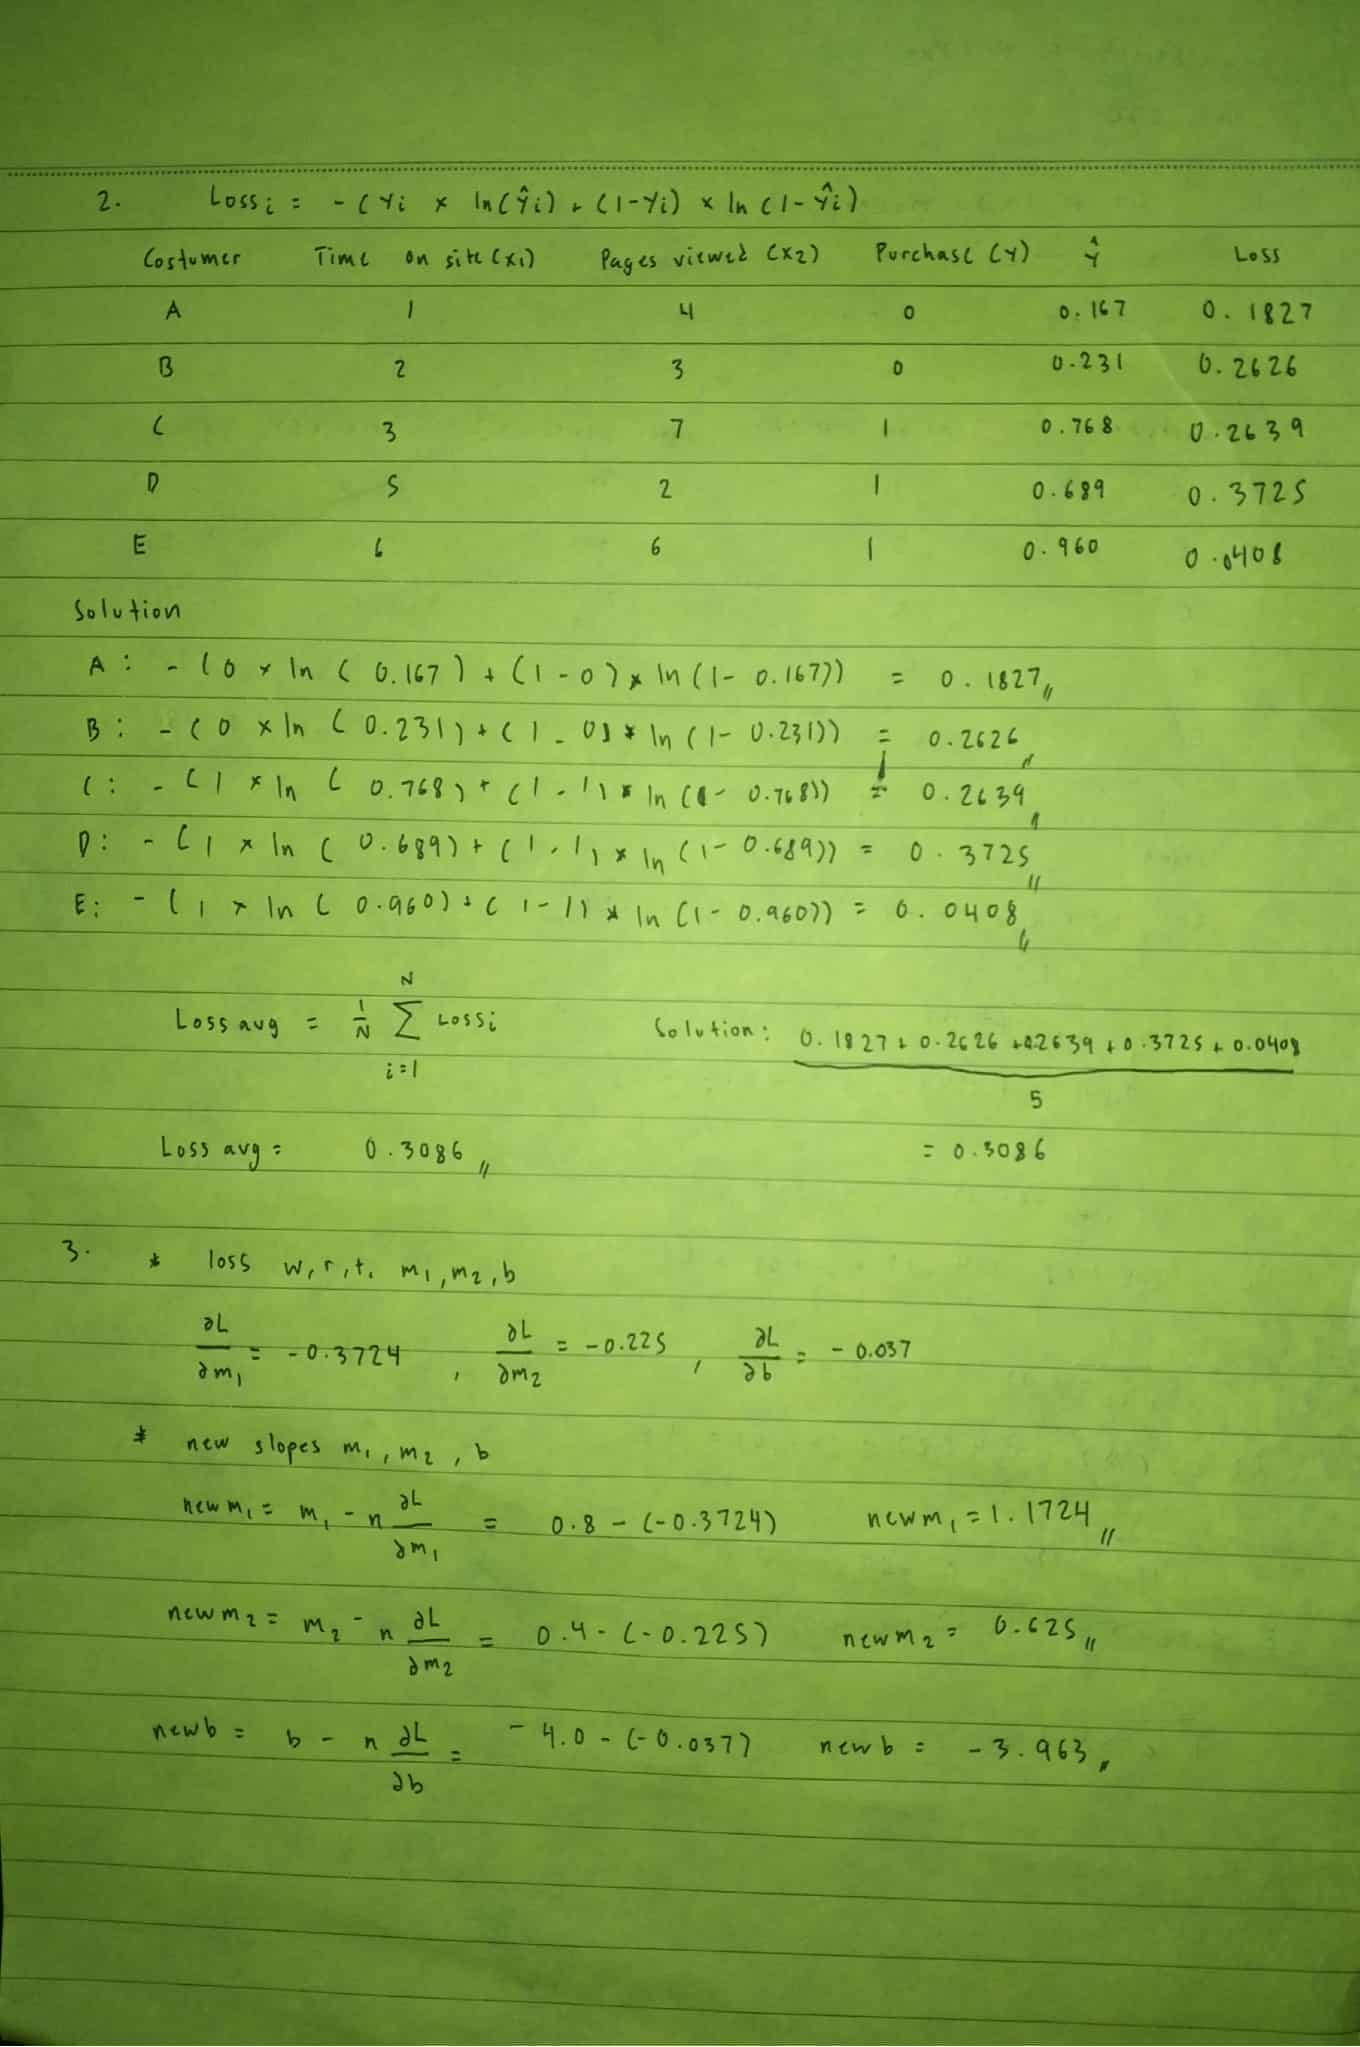 2. Loss i = - ( Yi × ln(Ŷi) + (1-Yi) × ln (1-Ŷi)
Costumer Time on site (x1) Pages viewed (x2) Purchase (Y) Ŷ Loss
A 1 4 0 0.167 0.1827
B 2 3 0 0.231 0.2626
C 3 7 1 0.768 0.2639
D 5 2 1 0.689 0.3725
E 6 6 1 0.960 0.0408
Solution
A : - (0 × ln ( 0.167 ) + (1-0) × ln (1- 0.167)) = 0.1827
B : - (0 × ln ( 0.231) + (1-0) × ln (1- 0.231)) = 0.2626
C : - (1 × ln ( 0.768) + (1-1) × ln (1- 0.768)) = 0.2639
D : - (1 × ln ( 0.689) + (1-1) × ln (1- 0.689)) = 0.3725
E : - (1 × ln ( 0.960) + (1-1) × ln (1- 0.960)) = 0.0408
Loss avg = 1/N N Σ i=1 Loss i Solution : 0.1827 + 0.2626 + 0.2639 + 0.3725 + 0.0408
5
Loss avg = 0.3086 = 0.3086
3. * loss w,r,t, m1, m2, b
∂L/∂m1 = -0.3724 , ∂L/∂m2 = -0.225 , ∂L/∂b = - 0.037
* new slopes m1, m2, b
new m1 = m1 - n ∂L/∂m1 = 0.8 - (-0.3724) new m1 = 1.1724
new m2 = m2 - n ∂L/∂m2 = 0.4 - (-0.225) new m2 = 0.625
new b = b - n ∂L/∂b = - 4.0 - (-0.037) new b = - 3.963